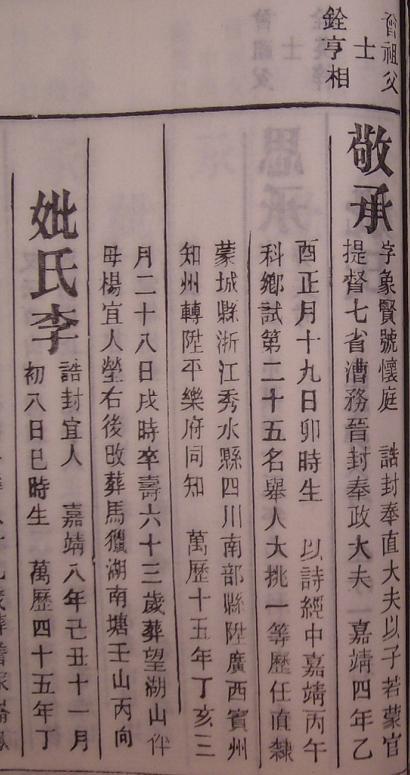 曾祖父
士
銓亨相
敬承
字象賢號懷庭 誥封奉直大夫以子若蒙官
提督七省漕務晉封奉政大夫 嘉靖四年乙
酉正月十九日卯時生 以詩經中嘉靖丙午
科鄉試第二十五名舉人大挑一等歷任直隸
蒙城縣浙江秀水縣四川南部縣陞廣西賓州
知州轉陞平樂府同知 萬歷十五年丁亥三
月二十八日戌時卒壽六十三歲葬望湖山伴
母楊宜人塋右後改葬馬玁湖南塘壬山丙向
妣氏李
誥封宜人 嘉靖八年己丑十一月
初八日巳時生 萬歷四十五年丁